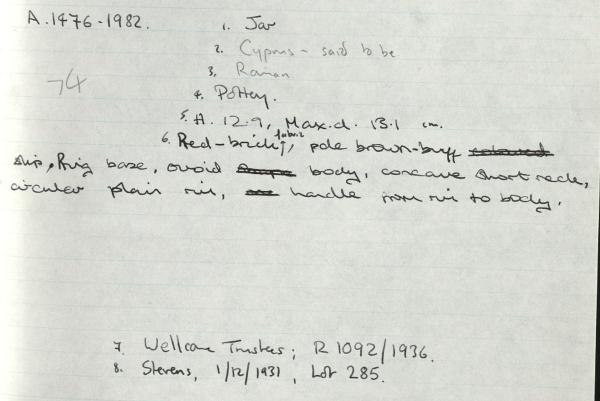 A.1476-1982.
1. Jar
2. Cyprus - said to be
3. Roman
74
4. Pottery.
5. H. 12.9, Max.d. 13.1 cm.
6. Red-brick fabric, pale brown-buff coloured
slip, Ring base, ovoid body, concave short neck,
circular plain rim, handle from rim to body.
7. Wellcome Trustees; R 1092/1936.
8. Stevens, 1/12/1931, Lot 285.